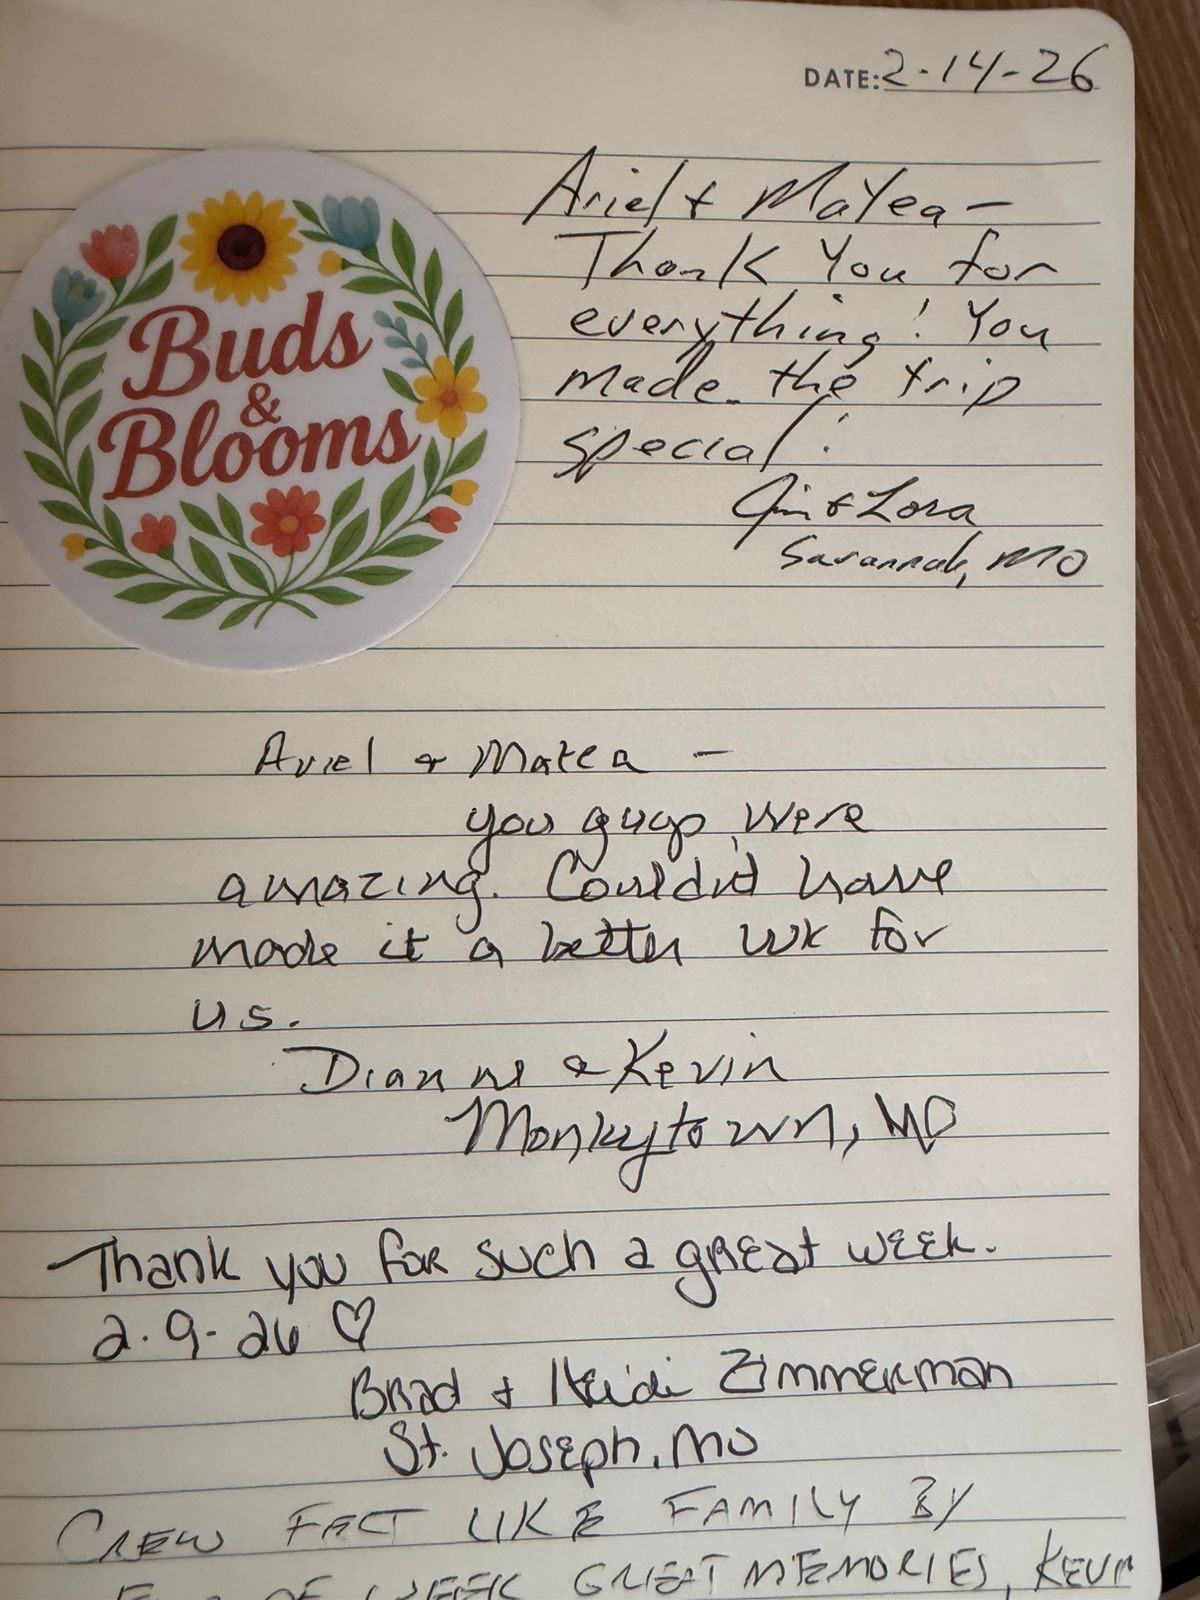 DATE: 2-14-26
Buds
&
Blooms
Ariel & MaYea -
Thank You for
everything! You
made the trip
special!
Jim & Lora
Savannah, MO
Ariel & Matea -
you guys were
amazing. Couldnt have
made it a better wk for
us.
Dianne & Kevin
Monkytown, MO
Thank you for such a great week.
2.9-26 ♡
Brad & Heidi Zimmerman
St. Joseph, MO
CREW FECT LIKE FAMILY BY
END OF WEEK GREAT MEMORIES, KEVIN